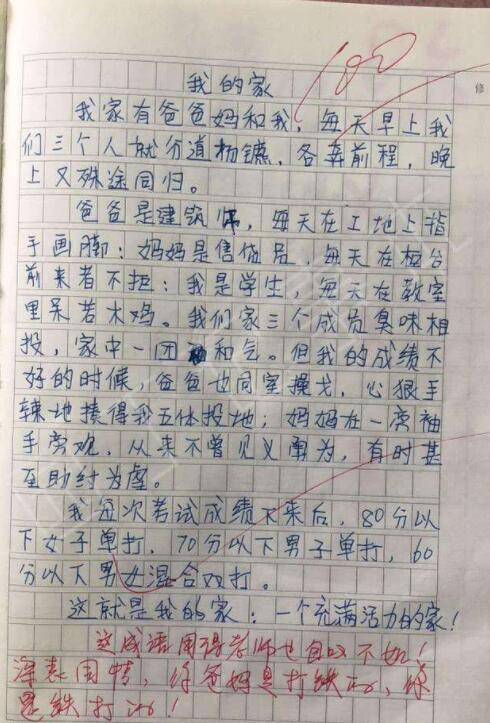 100
修
我的家
我家有爸爸妈和我，每天早上我
们三个人就分道扬镳，各奔前程，晚
上又殊途同归。
爸爸是建筑师，每天在工地上指
手画脚；妈妈是售货员，每天在柜台
前来者不拒；我是学生，每天在教室
里呆若木鸡。我们家三个成员臭味相
投，家中一团和气。但我的成绩不
好的时候，爸爸也同室操戈，心狠手
辣地揍得我五体投地；妈妈在一旁袖
手旁观，从来不曾见义勇为，有时甚
至助纣为虐。
我每次考试成绩下来后，80分以
下女子单打，70分以下男子单打，60
分以下男女混合双打。
这就是我的家：一个充满活力的家！
这成语用得老师也自叹不如！
深表同情，你爸妈是打铁的，你
是铁打的！